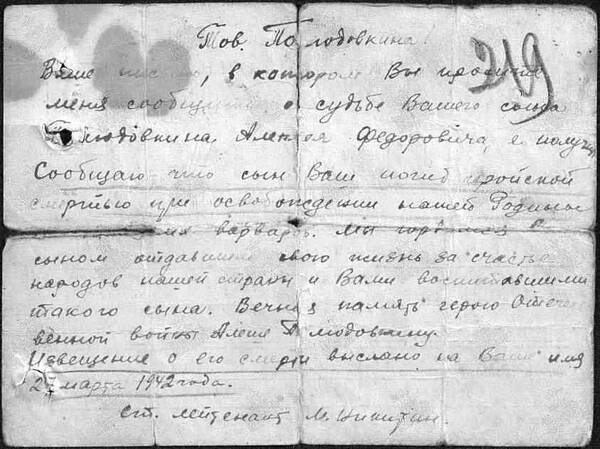 Тов. Полюдовкина
219
Ваше письмо, в котором Вы просите
меня сообщить о судьбе Вашего сына
Полюдовкина Алексея Федоровича, я получил
Сообщаю что сын Ваш погиб геройской
смертью при освобождении нашей Родины
варваров. Мы гордимся
сыном отдавшим свою жизнь за счастье
народов нашей страны и Вами воспитавшими
такого сына. Вечная память герою Отече
венной войны Алеше Полюдовкину.
Извещение о его смерти выслано на Ваше имя
27 марта 1942 года.
Ст. лейтенант М. Никитин.